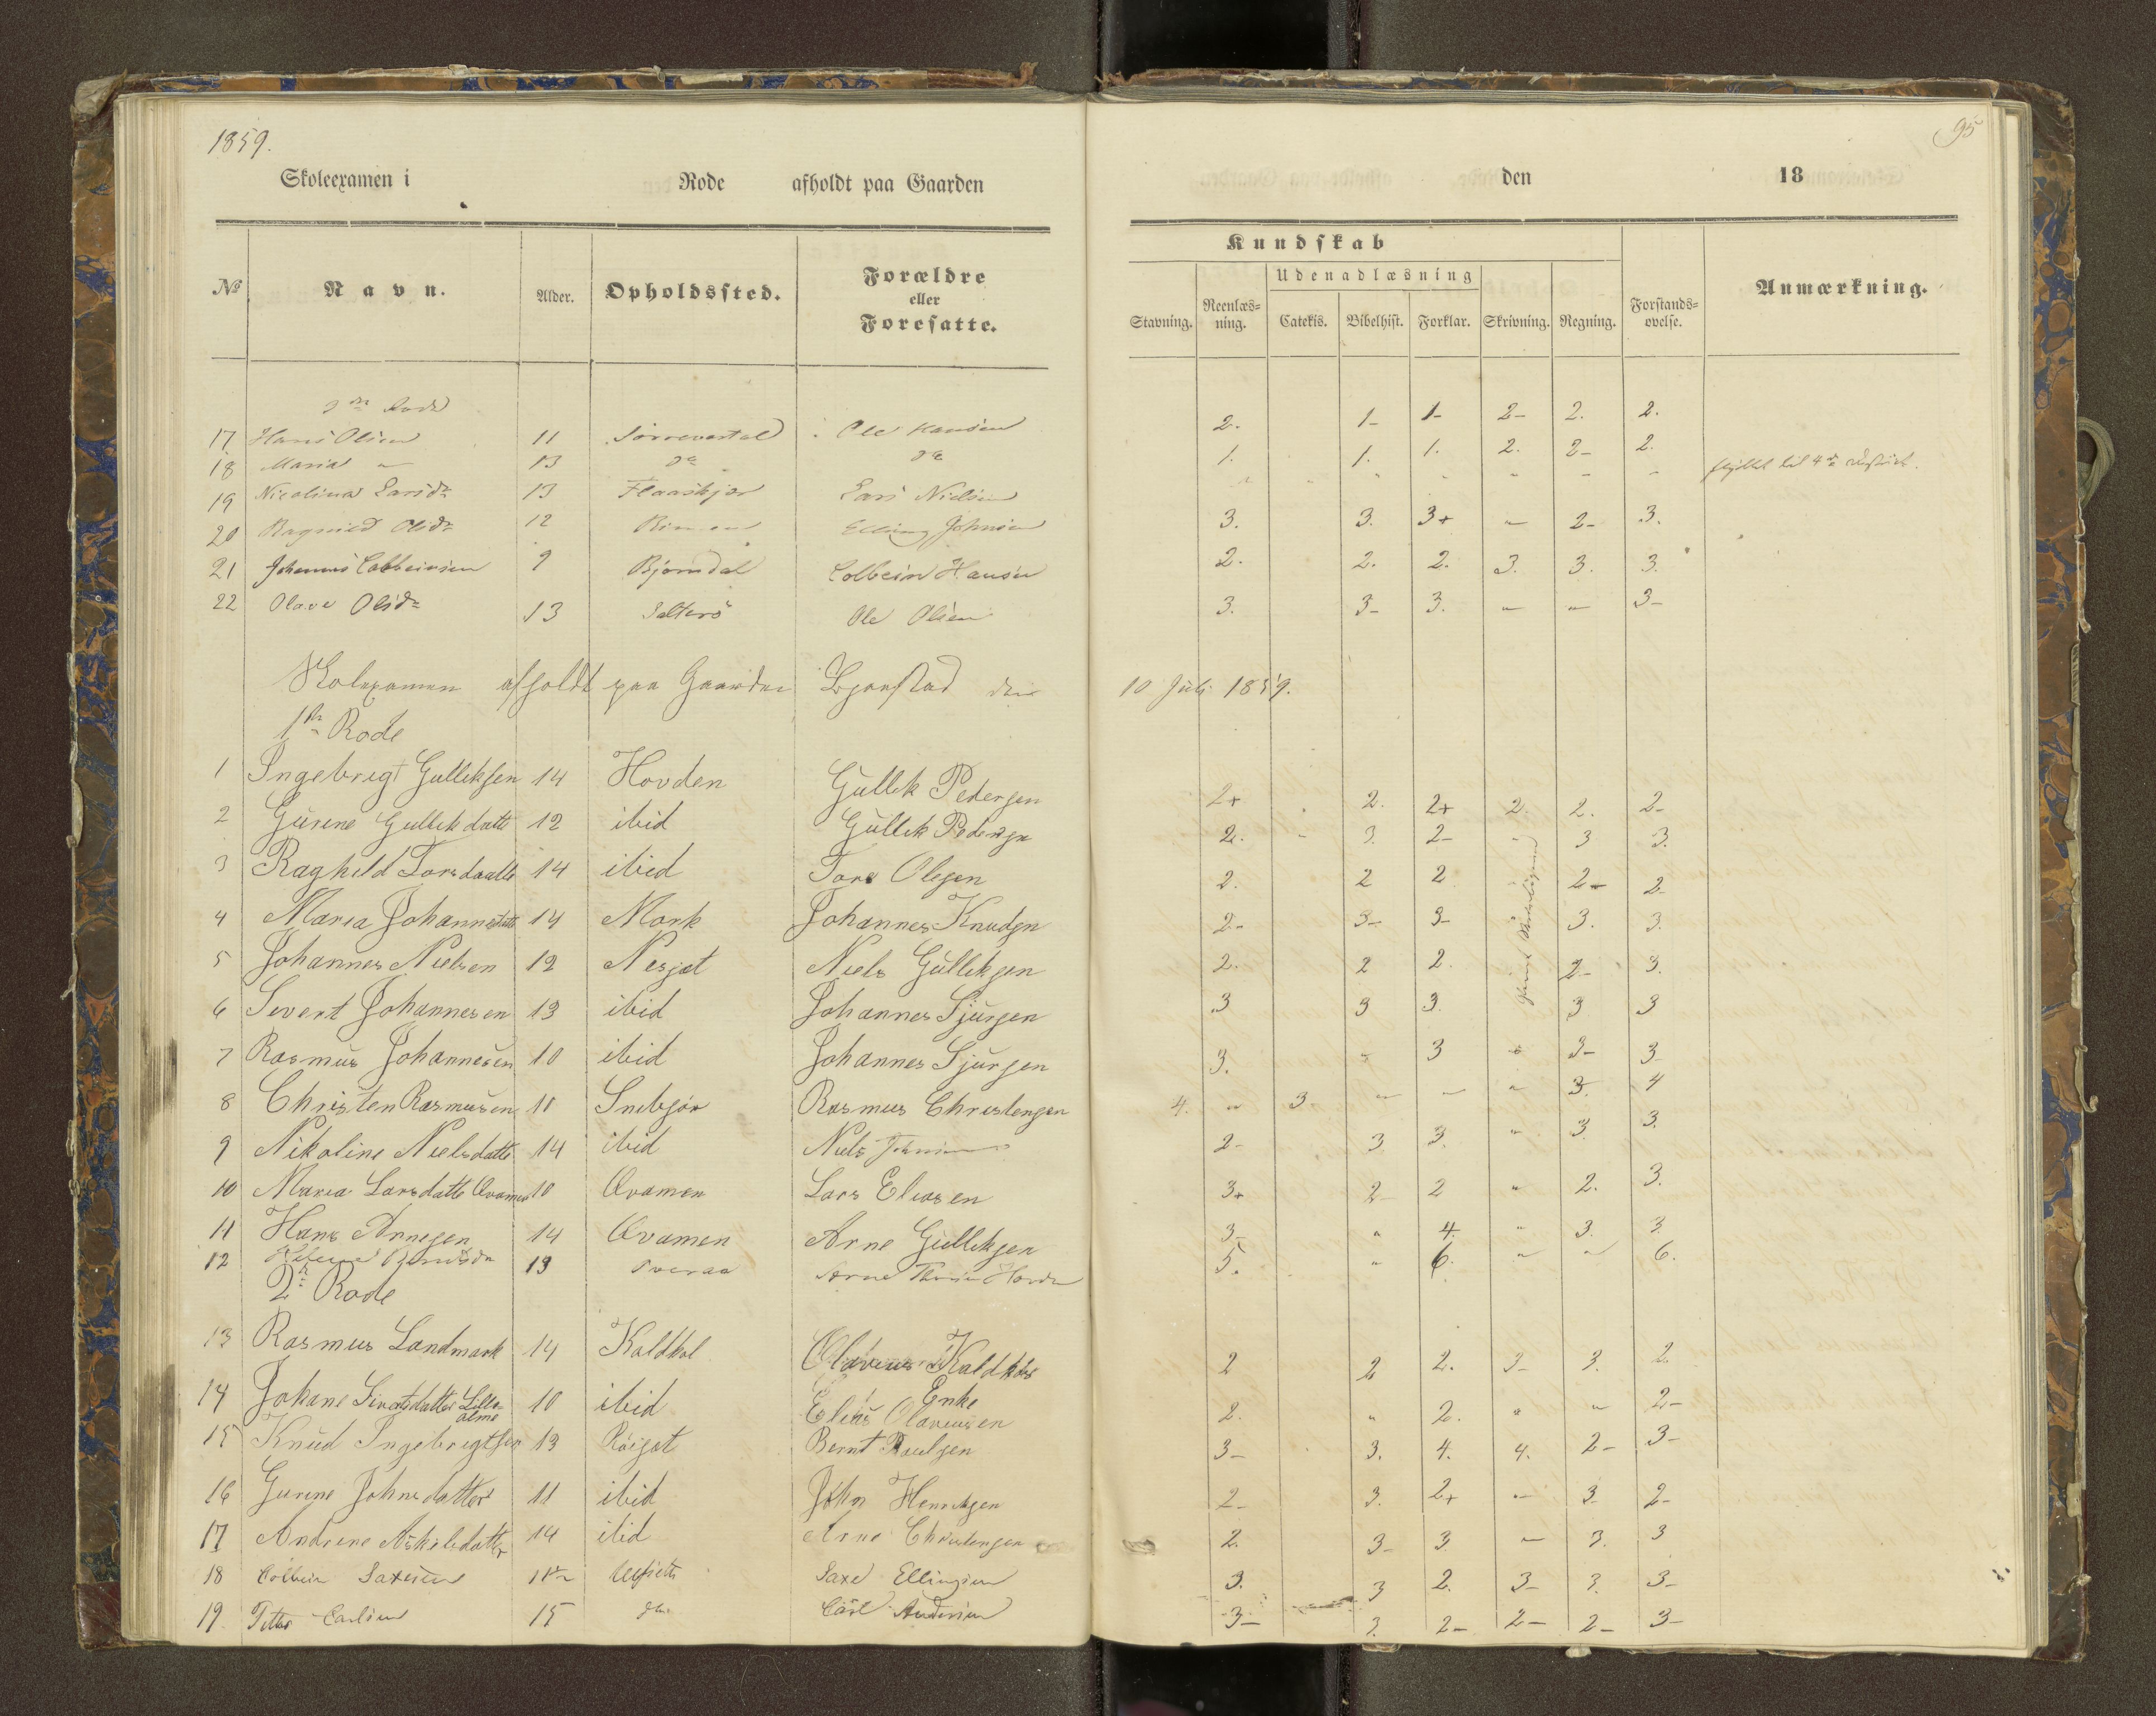 1859.
95
Skoleexamen i Rode afholdt paa Gaarden den 18
Kundskab
Udenadlæsning
No Navn. Alder. Opholdssted. Forældre eller Foresatte. Stavning. Reenlæsning. Catekis. Bibelhist. Forklar. Skrivning. Regning. Forstandsovelse. Anmærkning.
Rode
17 Hans Olsen 11 Ole Hansen 2. 1- 1- 2- 2. 2.
18 Maria " 13 do do 1. 1. 1. 2. 2- 2.
19 Nicolina Larsdr 13 Flaaskjær Lars Nielsen " " " " " " " flyttet til 4de
20 Ragnild Olsdr 12 Elling Johnsen 3. 3. 3+ " 2- 3.
21 Johannes Colbeinsen 9 Bjørndal Colbein Hansen 2. 2. 2. 3. 3. 3.
22 Olave Olsdr 13 Salterö Ole Olsen 3. 3- 3. " " 3-
Skolexamen afholdt paa Gaarden den 10 Juli 1859.
1ste Rode
1 Ingebrigt Gulliksen 14 Hovden Gullik Pedersen 2+ 2. 2+ 2. 2. 2-
2 Gurine Gullikdatte 12 ibid Gullik Pedersen 2. " 3. 2- " 3 3.
3 Raghild Torsdaatte 14 ibid Tore Olesen 2. 2 2 2- 2-
4 Maria Johannesdatte 14 Mork Johannes Knudsen 2- 3- 3- 3. 3.
5 Johannes Nielsen 12 Nesjæt Niels Gulliksen 2. 2 2. 2- 3.
6 Sivert Johannesen 13 ibid Johannes Sjursen 3 3 3. 3 3
7 Rasmus Johannesen 10 ibid Johannes Sjursen 3. " 3 " 3- 3
8 Christen Rasmusen 10 Snebjør Rasmus Christensen 4. " 3 " " " 3. 4
9 Nikoline Nielsdatte 14 ibid Niels 2- 3 3. " 3. 3.
10 Maria Larsdatte Qvamen 10 Qvamen Lars Eliasen 3+ 2 2 " 2. 3.
11 Hans Arnesen 14 Qvamen Arne Gulliksen 3- " 4. " 3 3
12 13 Arne 5. " 6. " " 6.
2den Rode
13 Rasmus Landmark 14 Kaldhol Olavus Kaldhols Enke 2 2 2. 3- 3. 2
14 Johane Sivertsdatter Lilleolme 10 ibid Elias Olavusen 2. " 2. " " 2-
15 Knud Ingebrigtsen 13 Röisæt Bernt Paulsen 3- 3. 4. 4. 2- 3-
16 Gurine Johnsdatter 11 ibid John Henriksen 2- 3. 2+ " 3 2-
17 Andrine Askilsdatter 14 ibid Arne Christensen 2. 3- 3 " 3. 3
18 Colbein Saxesen Saxe Ellingsen 3. 3 2. 3- 3. 3-
19. Petter Carlsen 15 do Carl Andersen 3- 3. 2- 2- 2- 3-